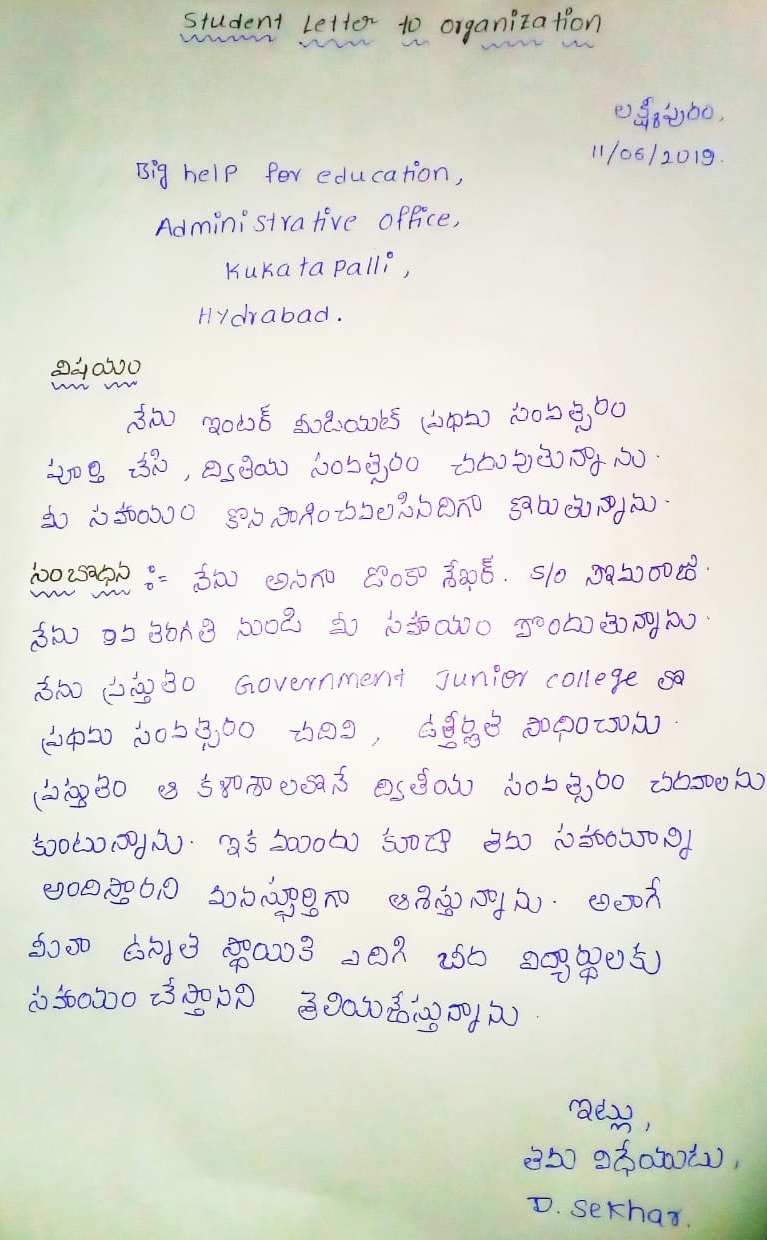 Student Letter to organization
లక్ష్మీపురం,
11/06/2019.
Big help for education,
Administrative office,
Kukatapalli,
Hydrabad.
విషయం
నేను ఇంటర్ మీడియట్ ప్రథమ సంవత్సరం
పూర్తి చేసి, ద్వితీయ సంవత్సరం చదువుతున్నాను.
మీ సహాయం కొనసాగించవలసినదిగా కోరుతున్నాను.
సంబోధన := నేను అనగా డొంకా శేఖర్. S/o సోమరాజు.
నేను 9వ తరగతి నుండి మీ సహాయం పొందుతున్నాను.
నేను ప్రస్తుతం Government Junior college లో
ప్రథమ సంవత్సరం చదివి, ఉత్తీర్ణత సాధించాను.
ప్రస్తుతం ఆ కళాశాలలోనే ద్వితీయ సంవత్సరం చదవాలను
కుంటున్నాను. ఇక ముందు కూడా తమ సహాయాన్ని
అందిస్తారని మనస్ఫూర్తిగా ఆశిస్తున్నాను. అలాగే
మీలా ఉన్నత స్థాయికి ఎదిగి బీద విద్యార్థులకు
సహాయం చేస్తానని తెలియజేస్తున్నాను.
ఇట్లు,
తమ విధేయుడు,
D. Sekhar.